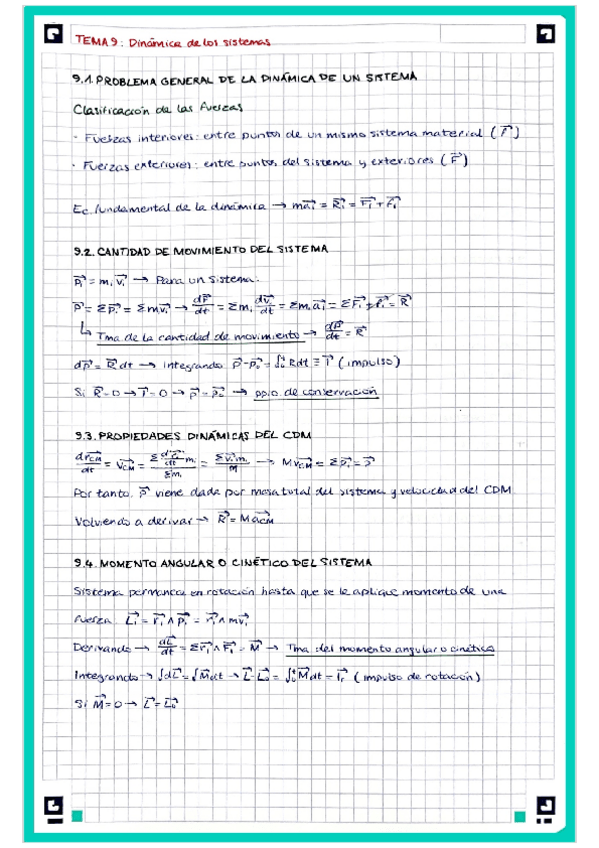 TEMA 9: Dinámica de los sistemas
9.1. PROBLEMA GENERAL DE LA DINÁMICA DE UN SISTEMA
Clasificación de las fuerzas
· Fuerzas interiores: entre puntos de un mismo sistema material (f⃗)
· Fuerzas exteriores: entre puntos del sistema y exteriores (F⃗)
Ec. fundamental de la dinámica → ma⃗ᵢ = R⃗ᵢ = F⃗ᵢ + f⃗ᵢ
9.2. CANTIDAD DE MOVIMIENTO DEL SISTEMA
p⃗ᵢ = mᵢ v⃗ᵢ → Para un sistema:
p⃗ = Σp⃗ᵢ = Σmv⃗ᵢ → dp⃗/dt = Σmᵢ dv⃗ᵢ/dt = Σmᵢa⃗ᵢ = ΣF⃗ᵢ + f⃗ᵢ = R⃗
↳ Tma de la cantidad de movimiento → dp⃗/dt = R⃗
dp⃗ = R⃗dt → integrando p⃗ - p⃗₀ = ∫₀ᵗ Rdt ≡ I⃗ (impulso)
Si R⃗ = 0 → I⃗ = 0 → p⃗ = p⃗₀ → ppio de conservación
9.3. PROPIEDADES DINÁMICAS DEL CDM
dr⃗CM/dt = v⃗CM = (Σ dr⃗ᵢ/dt mᵢ)/Σmᵢ = Σv⃗ᵢmᵢ/M → Mv⃗CM = Σp⃗ᵢ = p⃗
Por tanto, p⃗ viene dada por masa total del sistema y velocidad del CDM
Volviendo a derivar → R⃗ = Ma⃗CM
9.4. MOMENTO ANGULAR O CINÉTICO DEL SISTEMA
Sistema permanece en rotación hasta que se le aplique momento de una
fuerza. L⃗ᵢ = r⃗ᵢ ∧ p⃗ᵢ = r⃗ᵢ ∧ mv⃗ᵢ
Derivando → dL⃗/dt = Σr⃗ᵢ ∧ F⃗ᵢ = M⃗ → Tma del momento angular o cinético
Integrando → ∫dL⃗ = ∫M⃗dt → L⃗ - L⃗₀ = ∫₀ᵗ M⃗dt = I⃗r (impulso de rotación)
Si M⃗ = 0 → L⃗ = L⃗₀